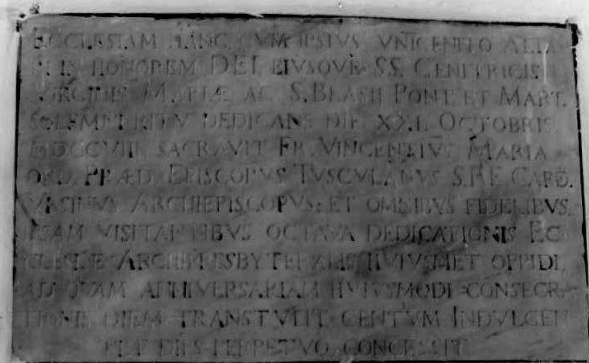 ECCLESIAM HANC CVM IPSIVS VNICENITO ALTA
IN HONOREM DEI EIVSQVE SS. GENITRICIS
VIRGINIS MARIÆ AC S. BLASII PONT. ET MART.
SOLEMNI RITV DEDICANS DIE XXI. OCTOBRIS
MDCCVIII. SACRAVIT FR. VINCENTIVS MARIA
ORD. PRÆD. EPISCOPVS TVSCVLANVS S.R.E. CARD.
VRSINVS ARCHIEPISCOPVS: ET OMNIBVS FIDELIBVS
EAM VISITANTIBVS OCTAVA DEDICATIONIS EC
CLESIÆ ARCHIPRESBYTERALIS HVIVSMET OPPIDI,
AD QVAM ANNIVERSARIAM HVIVSMODI CONSECRA
TIONIS DIEM TRANSTVLIT CENTVM INDVLGEN
TIÆ DIES PERPETVO CONCESSIT